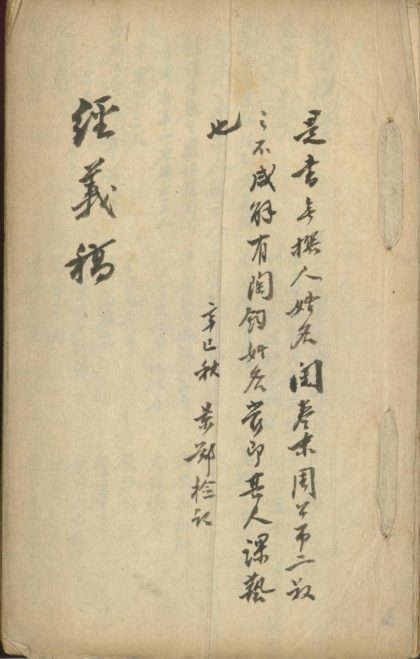 是書無撰人姓名閱卷末周公弔二叔
之不咸解有陶鈞姓名當即其人課藝
也
辛巳秋 景鄭檢記
經義稿